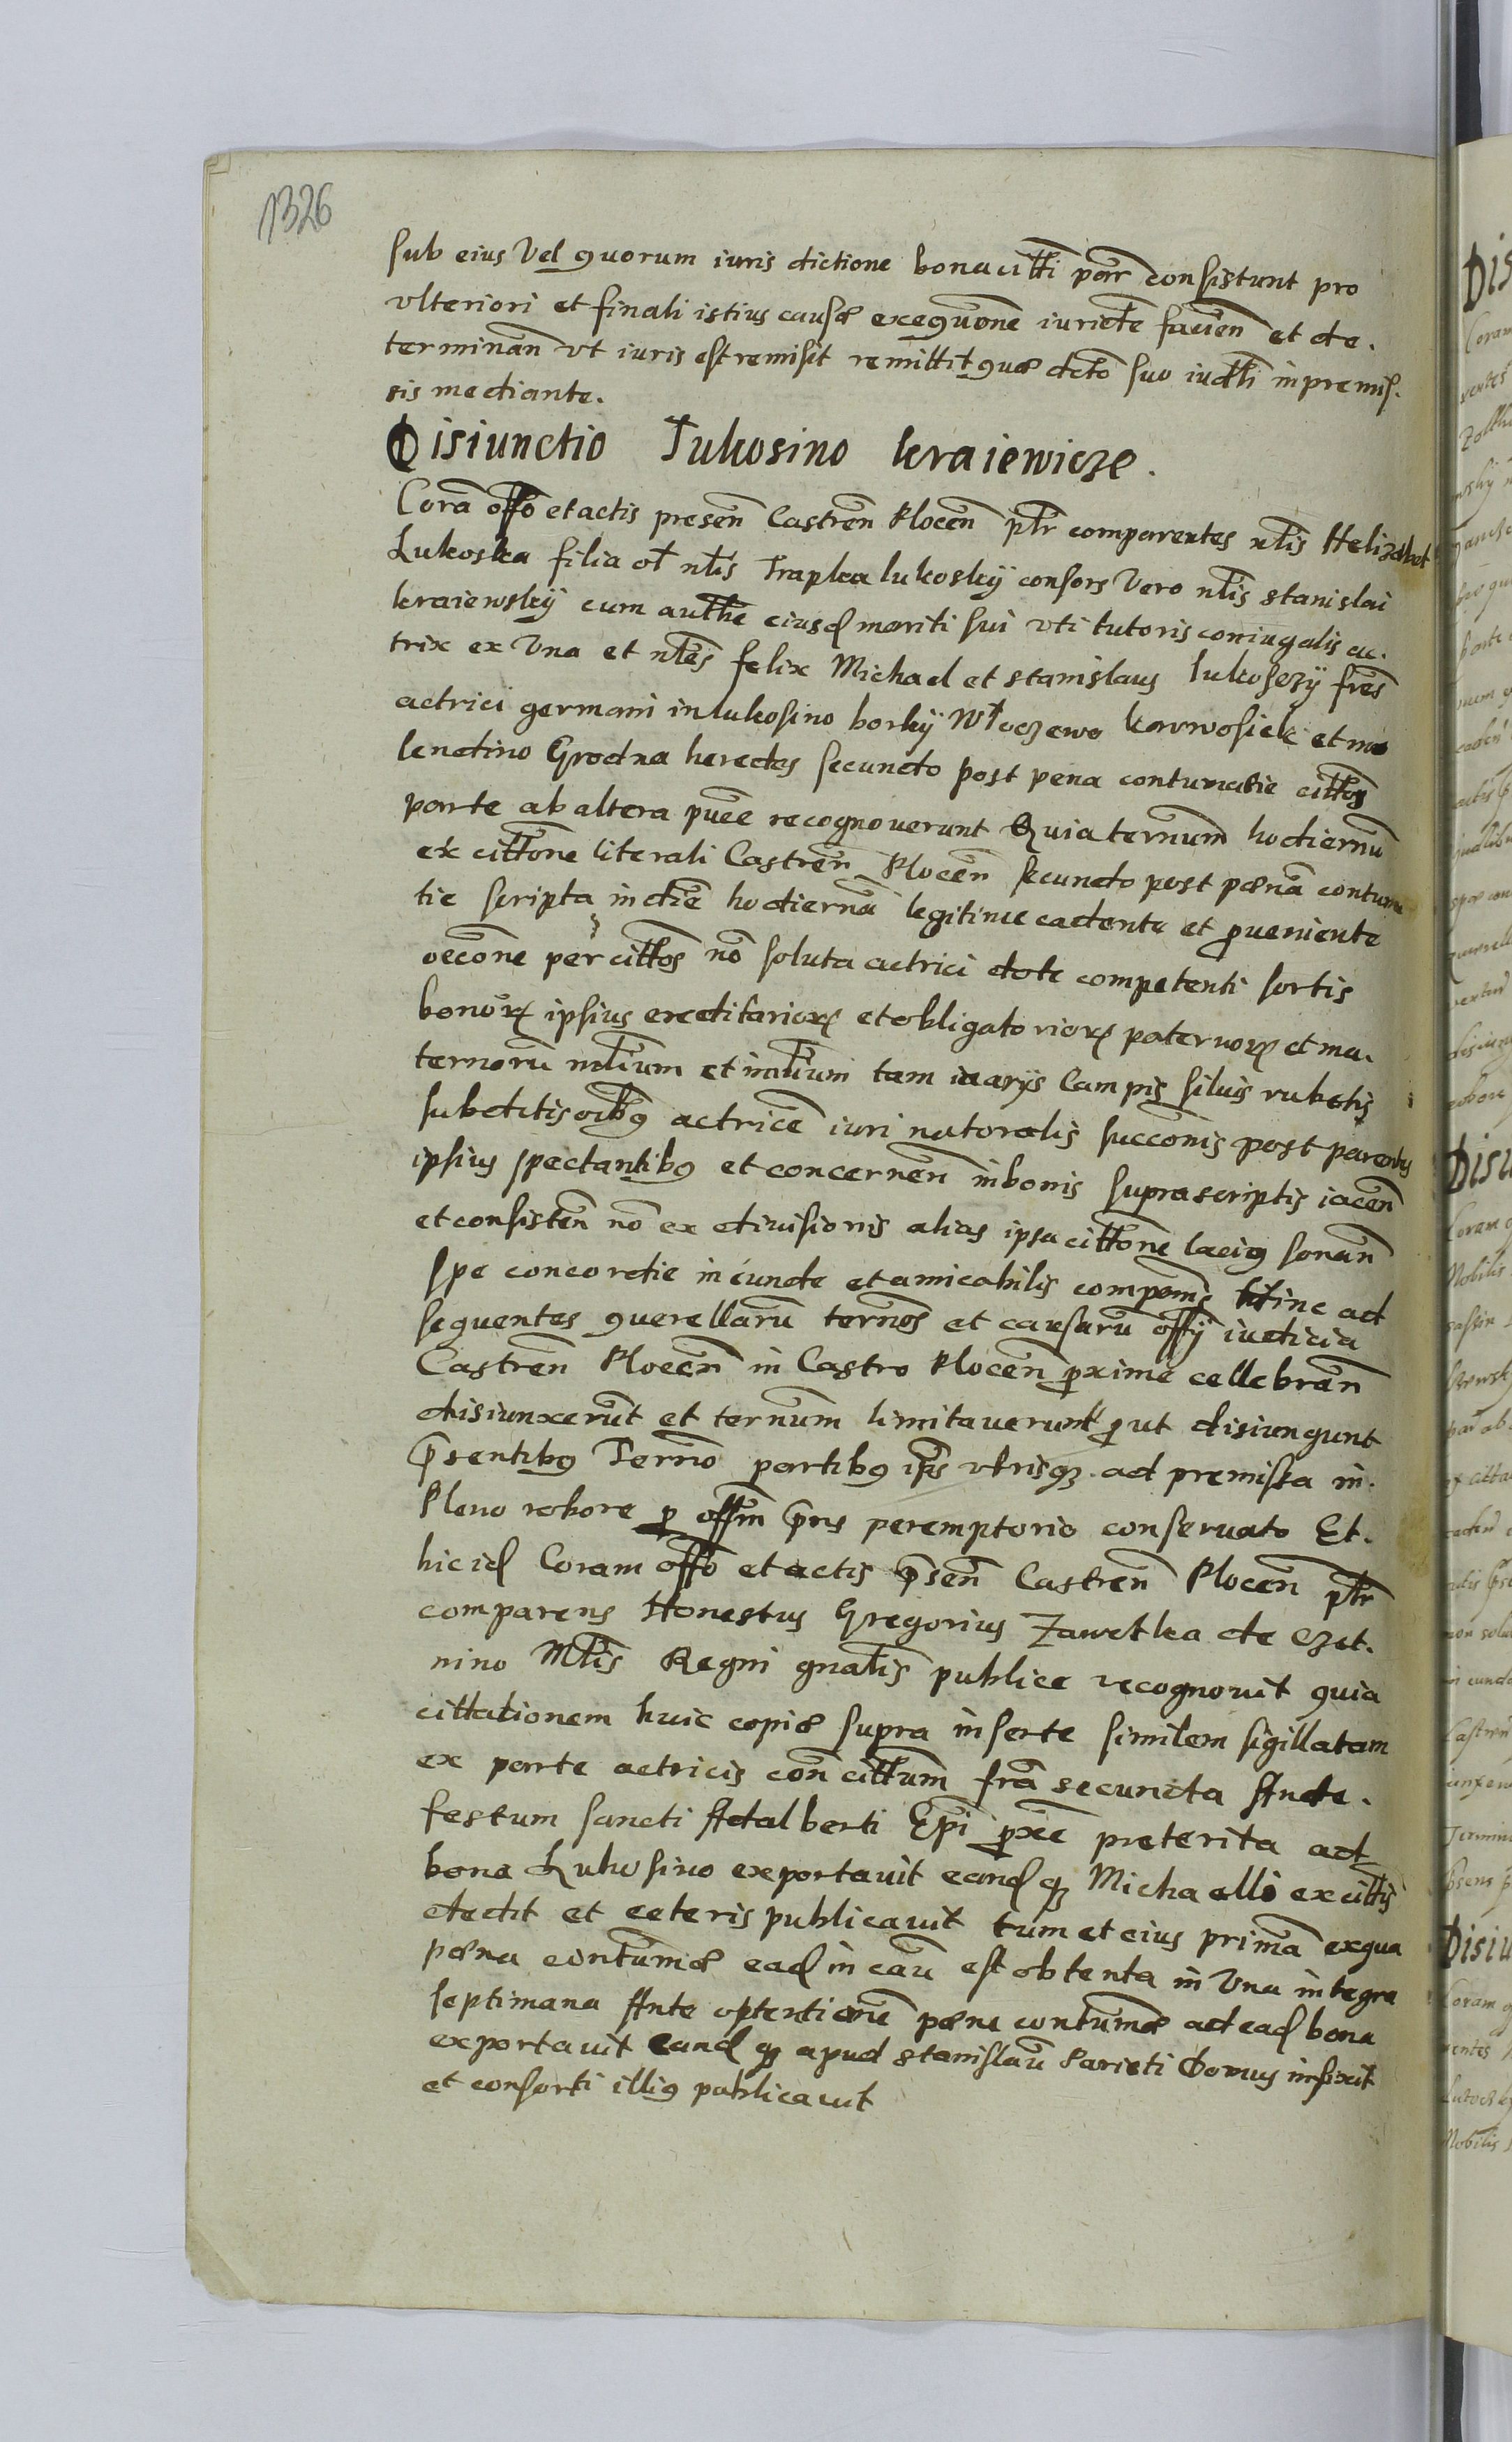 1326
sub eius Vel quorum iuris dictione bona citti par consistunt pro
vlteriori et finali istius causæ exequone iuridte facien et de.
terminan vt iuris est remisit remittitquæ dcto suo iudtli in premis.
sis mediante.
Disiunctio Łukosino kraiewicze.
Cora offo et actis presen Castren Plocen ptr comparentes nlis Helizabet
Lukoska filia ol nlis Trapka lukosky consors Vero nlis stanislai
kraiewsky cum authe eiusd mariti sui vti tutoris coniugalis ac.
trix ex Vna et nles felix Michael et stanislaus lukosczy fres
actrici germani in lukosino borky Włoczewo karwosieki et mo
lendino Grodna heredes secundo post pena contumatie cittos
parte ab altera puce recognouerunt Quia ternum hodiernu
ex cittone literali Castren Plocen secundo post pœna contuma
tie scripta in die hodierna legitime cadente et pueniente
occone per cittos no soluta actrici dote competenti sortis
bonorx ipsius ereditariorx et obligatoriorx paternorx et ma.
ternoru mlium et imlium tam in agrys Campis siluis rubetis
subditis oibus actrice iuri naturalis succonis post parentes
ipsius spectantibus et concernen in bonis suprascriptis iacen
et consisten no ex diuisionis alias ipsa cittone lacius sonan
spe concordie in eunde et amicabilis componis hinc ad
sequentes querellaru ternos et causaru offy iudicia
Castren Plocen in Castro Plocen pxime cellebran
disiunxerut et ternum limitauerunt put disiungunt
psentibus Terno partibus ipis vtrisqz ad premissa in.
Pleno robore p offm pns peremptorio conseruato Et.
hic id Coram offo et actis psen Castren Plocen ptr
comparens Honestus Gregorius Zawetka de Czet.
nino Mlis Regni gnalis publice recognouit quia
cittationem huic copiæ supra inserte similem sigillatam
ex parte actricis con cittum fra secunda Ante.
festum sancti Adalberti Epi pxe preterita ad
bona Lukosino exportauit eandqz Michaelli ex cittis
dedit et ceteris publicauit tum et eius prima ex qua
pœna contumæ ead in cau est obtenta in Vna integra
septimana Ante optentione pœne contumæ ad ead bona
exportauit eandqz apud stanislau Parieti Domus infixit
et consorti illius publicauit